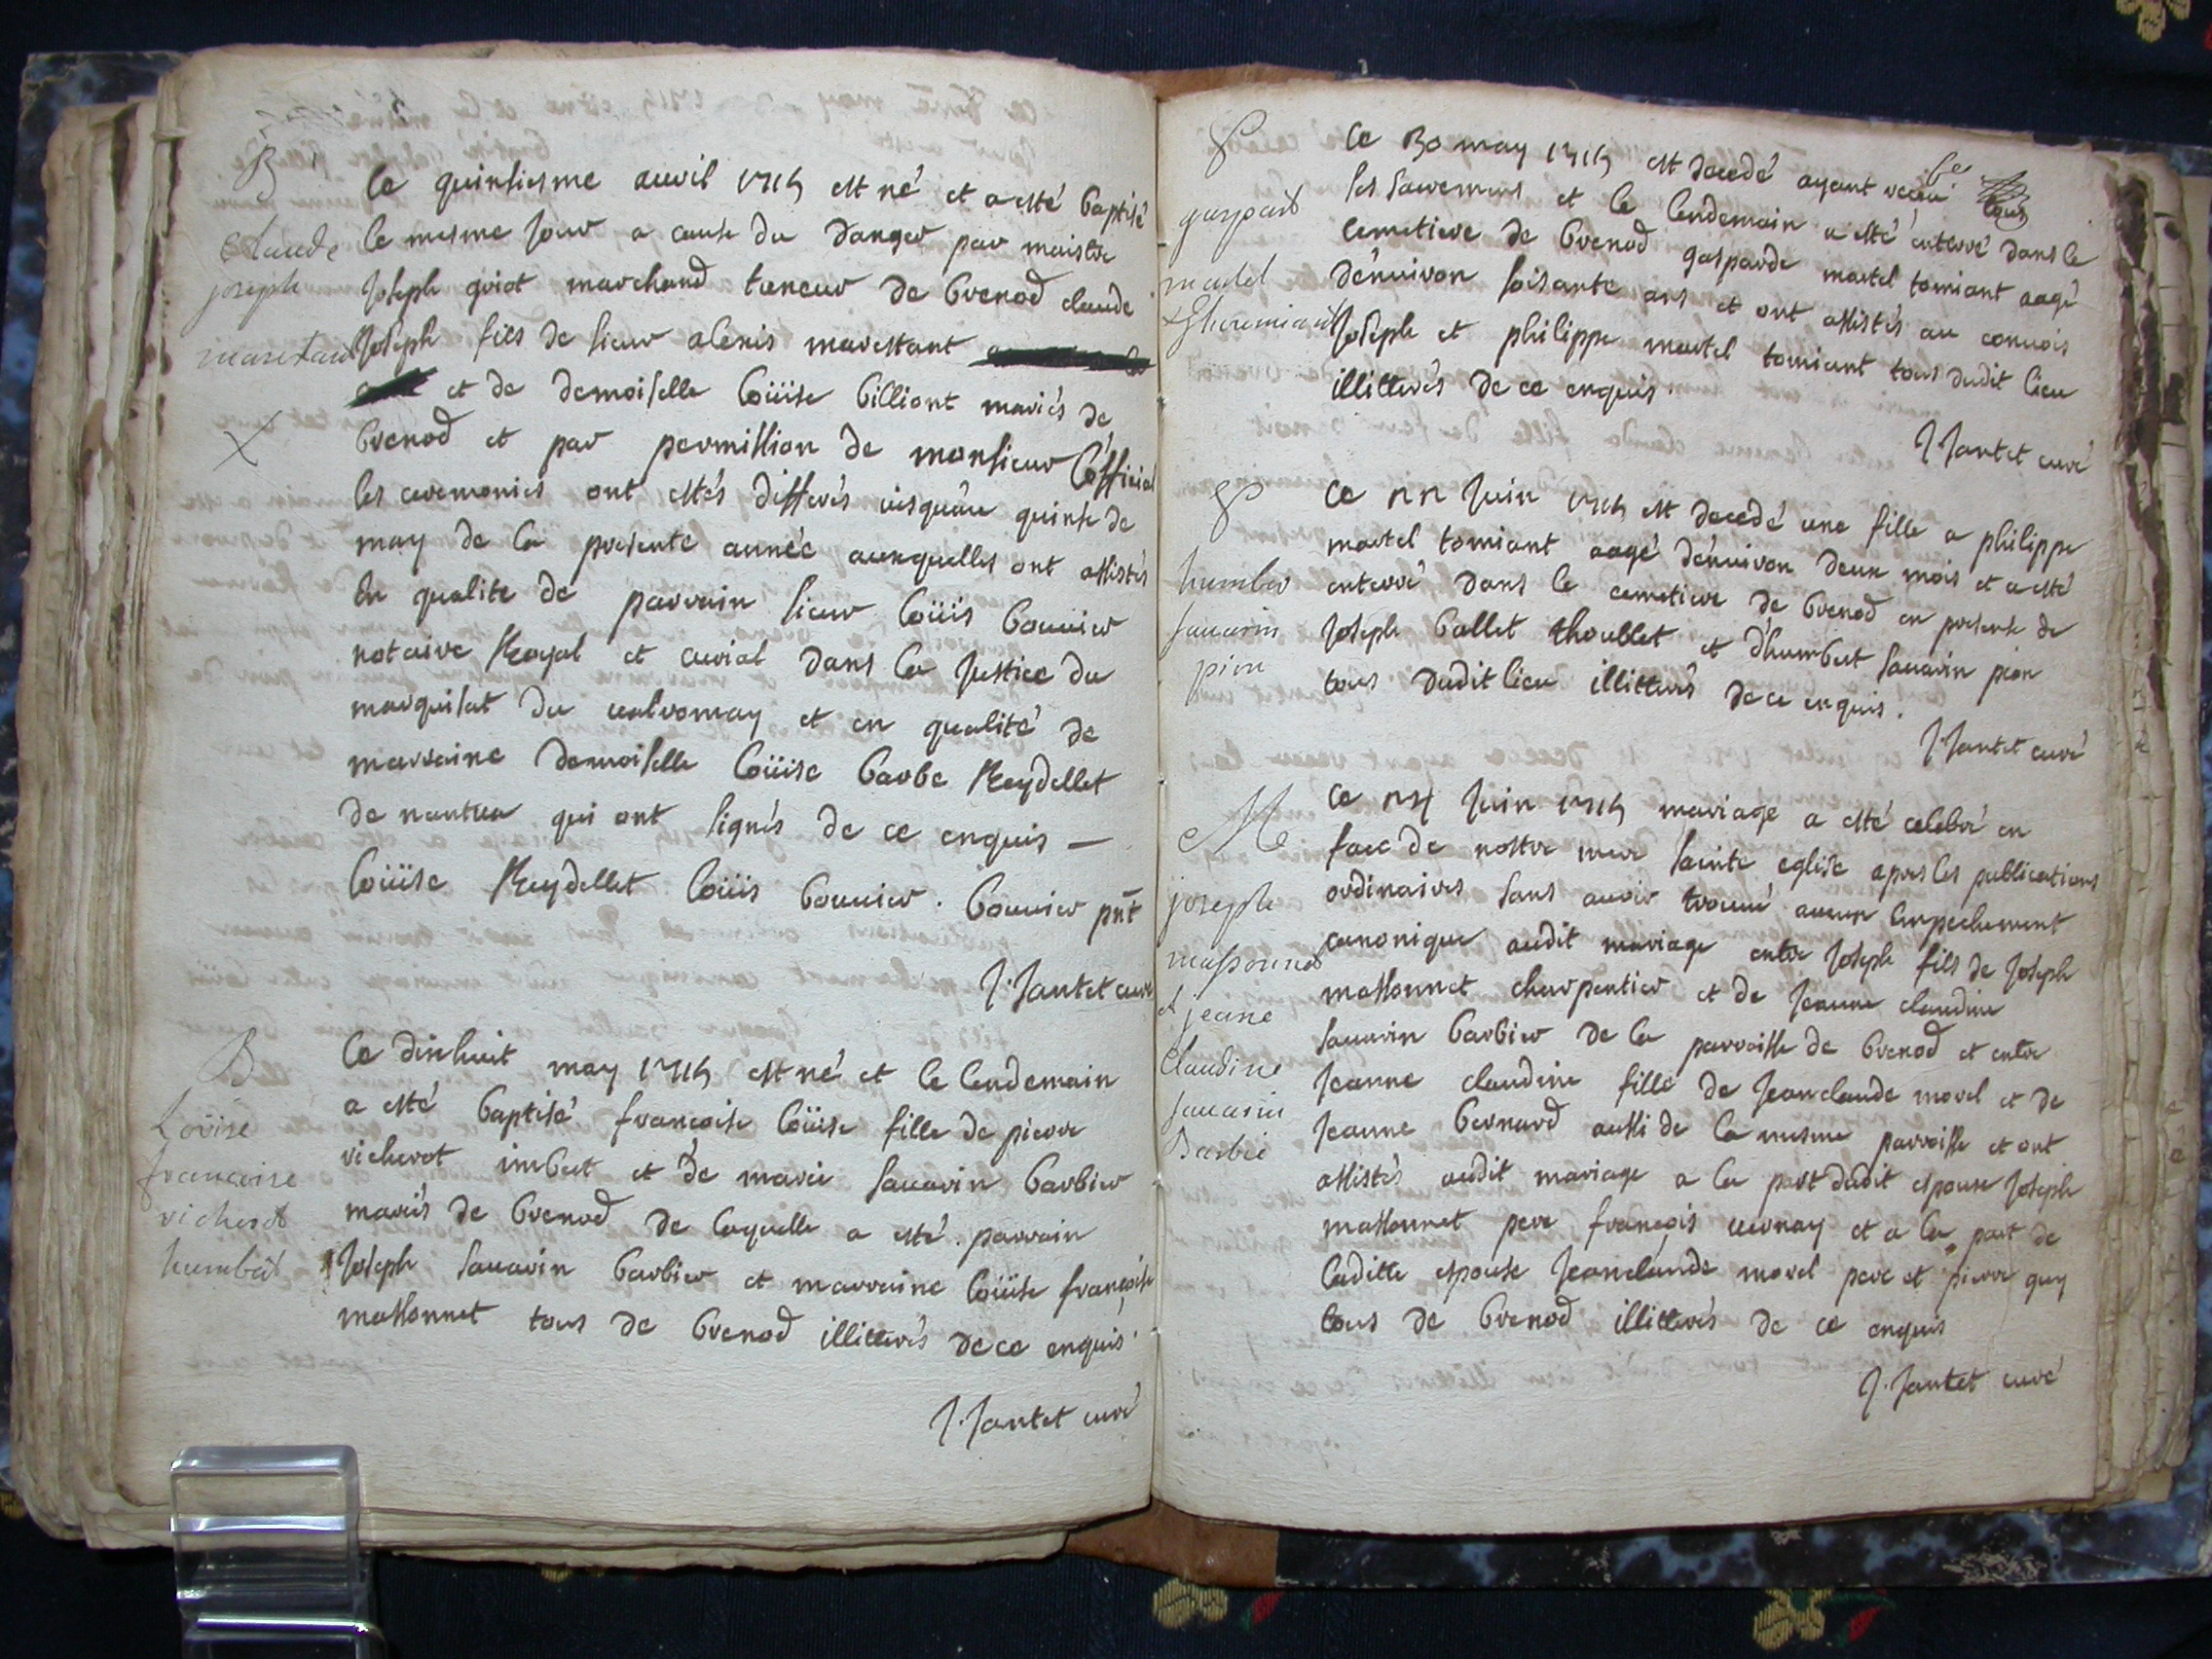 B
Claude
joseph
marestand
Le quinsiesme avril 1715 est né et a esté baptisé
le mesme jour a cause du danger par maistre
Joseph guiot marchand taneur de brenod claude
Joseph fils de sieur alexis marestant
et de demoiselle Loüise billiont mariés de
brenod et par permission de monsieur L'official
les ceremonies ont estés differés jusqu'au quinse de
may de la presente année auxquelles ont assistés
En qualite de parrain sieur Loüis bouuier
notaire Royal et curial dans la Justice du
marquisat du valromay et en qualité de
marraine demoiselle Loüise barbe Reydellet
de nantua qui ont signés de ce enquis —
Loüise Reydellet Loüis bouuier . bouuier pnt
J. Jantet curé
B
Loüise
francoise
vicherot
humbert
Le dixhuit may 1715 est né et le lendemain
a esté baptisé francoise Loüise fille de pierre
vicherot imbert et de marie sauarin barbier
mariés de brenod de laquelle a esté parrain
Joseph sauarin barbier et marraine Loüise françoise
massonnet tous de brenod illitterés de ce enquis
J. Jantet curé
gaspard
martel
Ce 30 may 1715 est decedé ayant receu tous
les sacremens et le lendemain a esté enterré dans le
cemetiere de brenod gasparde martel tomiant aagé
d'enuiron soisante ans et ont assistés au conuois
Joseph et philippe martel tomiant tous dudit lieu
illitterés de ce enquis .
J. Jantet curé
humber
sauarin
pion
Ce 22 Juin 1715 est decedé une fille a philippe
martel tomiant aagé d'enuiron deux mois et a esté
enterré dans le cemetiere de brenod en presense de
Joseph ballet thoublet et d'humbert sauarin pion
tous dudit lieu illitterés de ce enquis .
J. Jantet curé
M
joseph
massonnet
et jeane
Claudine
sauarin
Barbié
Ce 24 Juin 1715 mariage a esté celebré en
face de nostre mere sainte eglise apres les publications
ordinaires sans auoir trouué aucun empechement
canonique audit mariage entre Joseph fils de Joseph
massonnet charpentier et de Jeanne claudine
sauarin barbier de la parroisse de brenod et entre
Jeanne claudine fille de Jeanclaude morel et de
Jeanne bernard aussi de la mesme parroisse et ont
assistés audit mariage a la part dudit espoux Joseph
massonnet pere françois uernay et a la part de
laditte espouse Jeanclaude morel pere et pierre guy
tous de brenod illitterés de ce enquis
J. Jantet curé